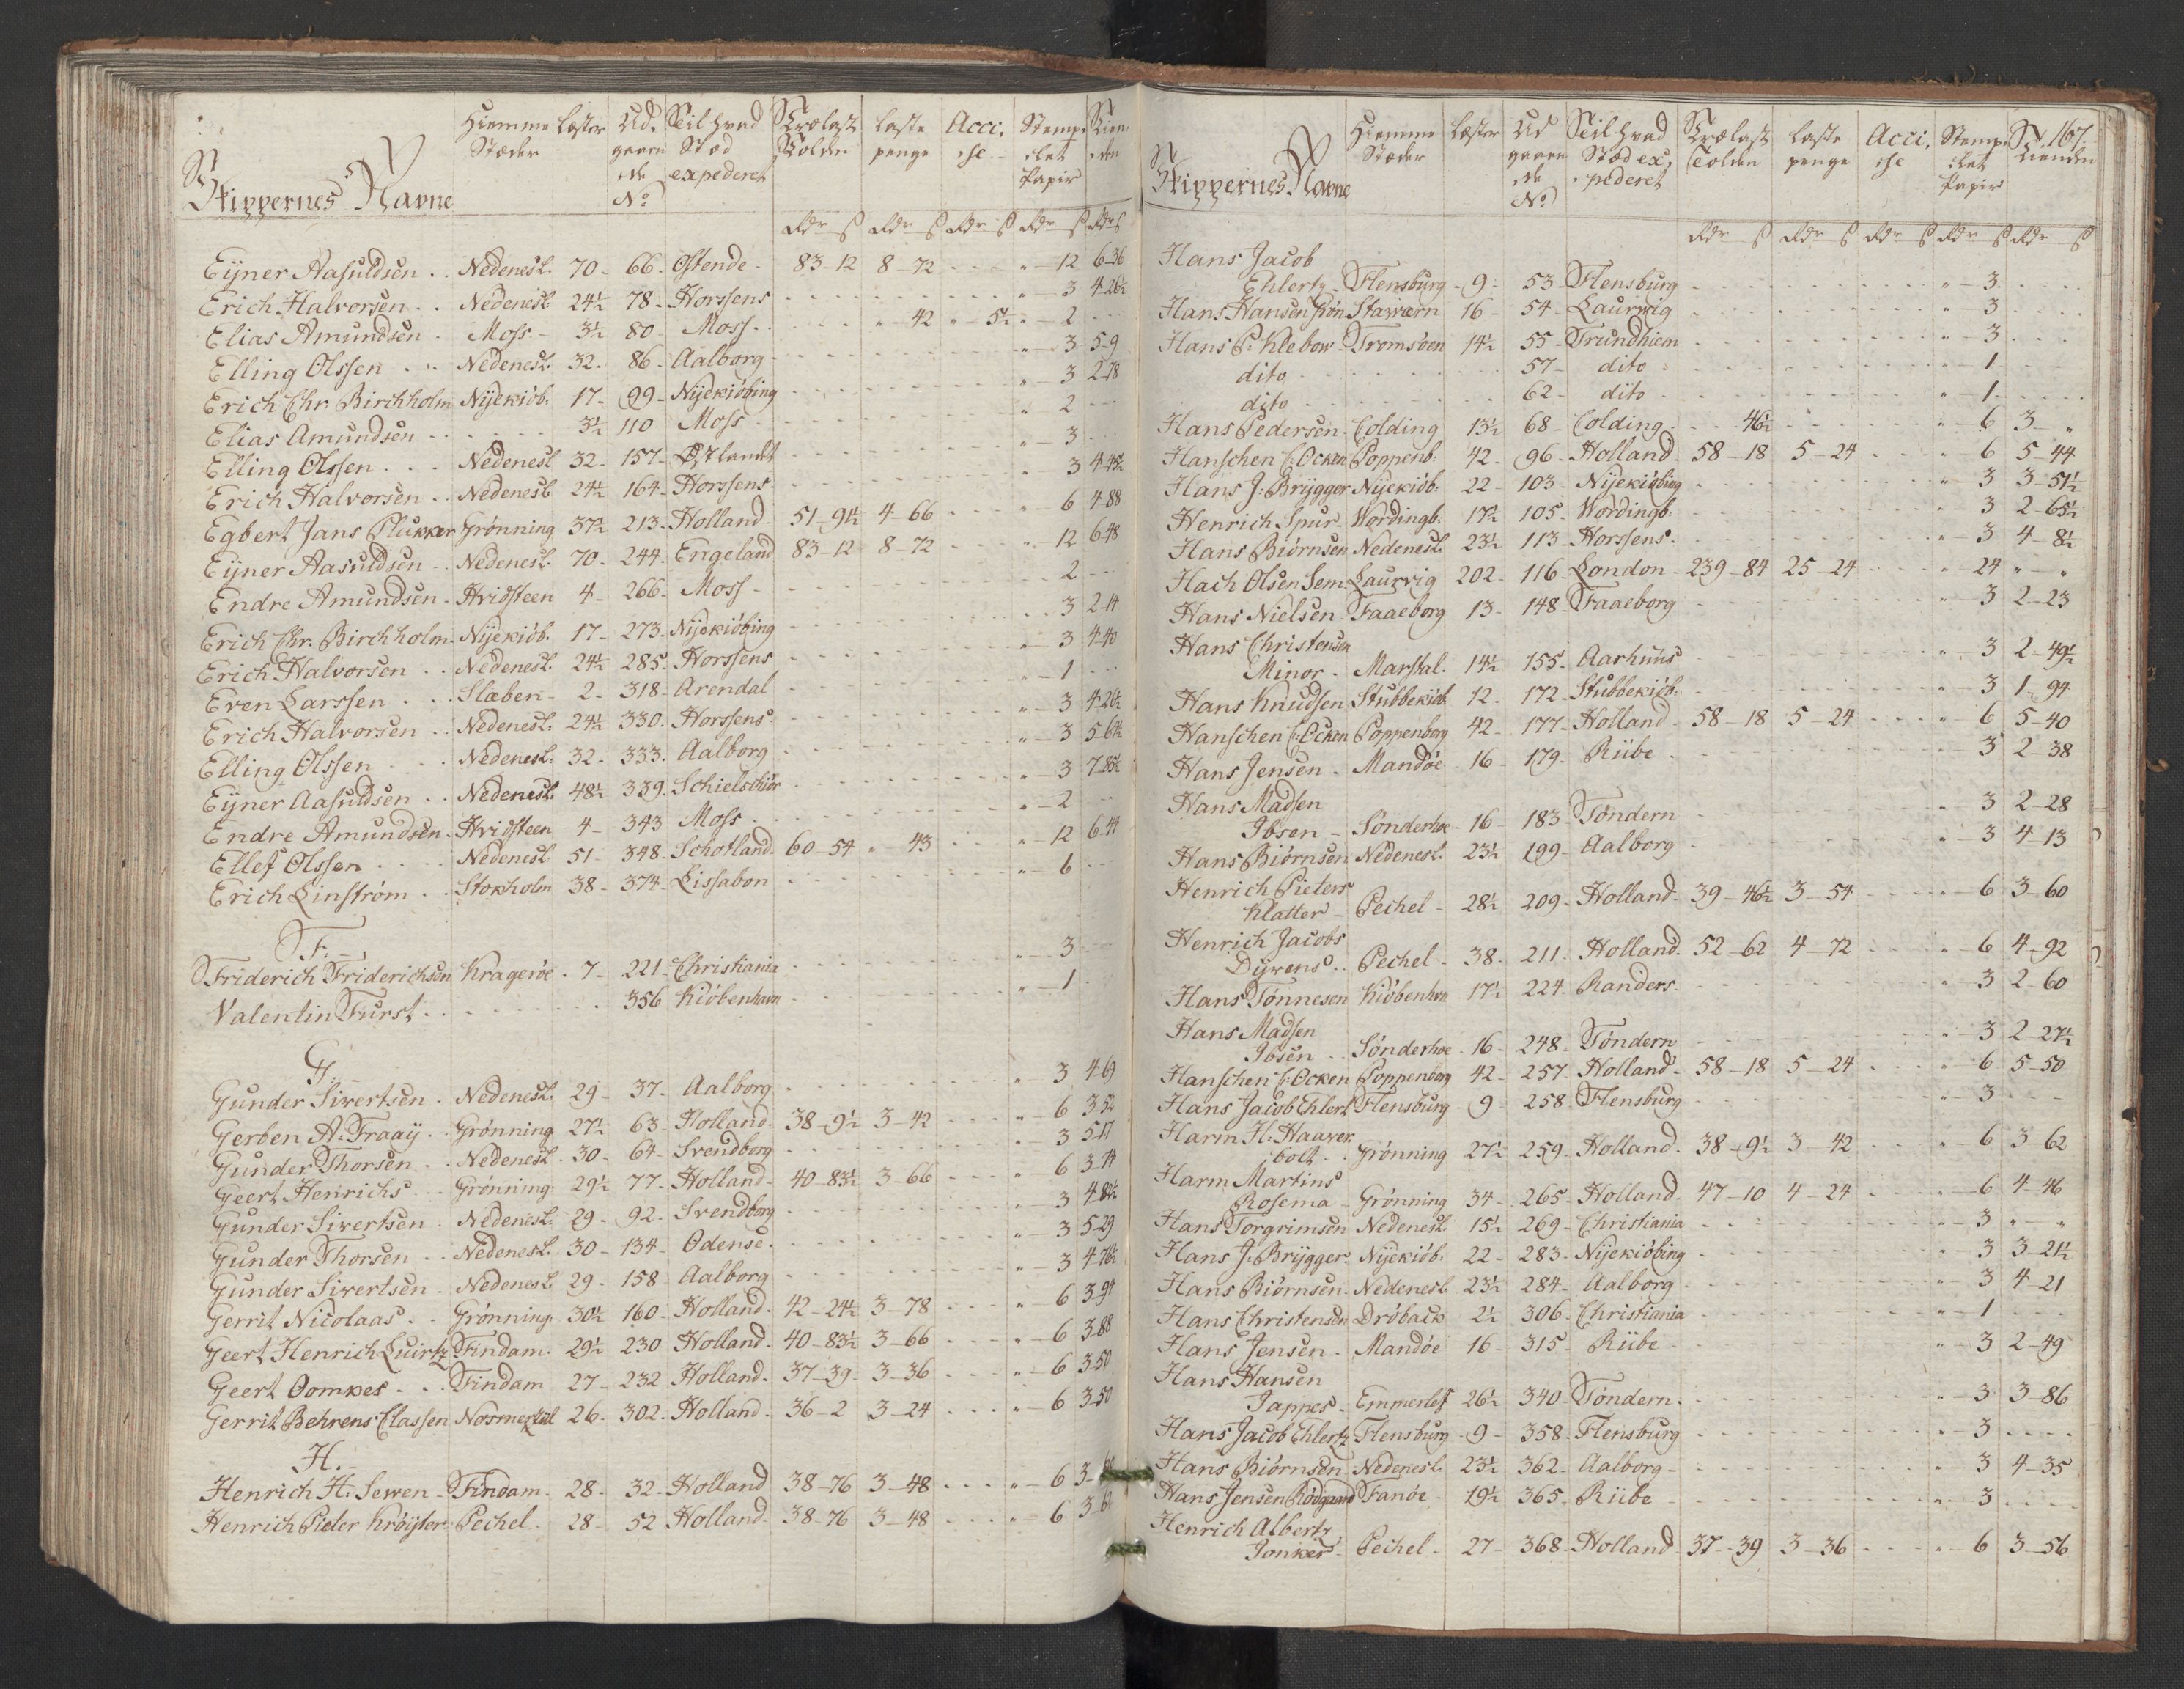 Skippernes Navne Hiemme Stæder Læster Udgaaende No Til hvad Stæd expederet Trælast Tolden Laste penge Accise Stemplet Papir Kienden
Rdr ß Rdr ß Rdr ß Rdr ß Rdr ß
Eÿner Aasuldsen . . Nedenesl. 70 - 66 - Ostende - 83-12 8-72 - - - " - 12 6-36
Erich Halvorsen . . Nedenesl. 24½ 78 - Horssens - - - " - 3 4-26½
Elias Amundsen . Moss - 3½ 80 - Moss - - - " - 42 " - 5½ " - 2 - - -
Elling Olssen . . Nedenesl. 32 - 86 - Aalborg - - - " - 3 5-9
Erich Chr. Birchholm Nijekiöb. 17 - 99 - Nÿekiöbing - - - " - 3 2-18
Elias Amundsen - - - 3½ 110 Moss - - - " 2 - - -
Elling Olssen . . . Nedenesl 32 - 157 - Østlandt - - - " - 3 - - -
Erich Halvorsen . . Nedenesl 24½ 164 - Horssens - - - " 3 4-45½
Egbert Jans Plukker Grønning 37½ 213 - Holland - 51-91½ 4-66 - - - " - 6 4-88
Eÿner Aasuldsen . . Nedenesl. 70 - 244 - Engeland 83-12 8-72 - - - " - 12 6-48
Endre Amundsen - Hvidsteen 4 - 266 - Moss - - - 2 - - -
Erich Chr. Birchholm Nijekiöb. 17 - 273 - Nijekiöbing - - - 3 2-14
Erich Halvorsen . . Nedenesl. 24½ 285 - Horssens - - - " - 3 4-40
Even Larssen . . . Slæben - 2 - 318 - Arendal - - - " - 1 - - -
Erich Halvorsen . . Nedenesl. 24½ 330 - Horssens - - - " - 3 4-26½
Elling Olssen . . . Nedenesl. 32 - 333 - Aalborg - - - " - 3 5-6½
Eÿner Aasuldsen . . Nedenesl. 48½ 339 - Schielschiör - - - " - 3 7-85½
Endre Amundsen . Hvidsteen 4 - 343 Moss - - - " - 2 - - -
Ellef Olssen . . . . Nedenesl 51 - 348 - Schotland - 60-54 " - 43 - - - " - 12 6-44
Erich Linström . . Stokholm 38 - 374 - Lissabon - - - " - 6 - - -
F.
Friderich Friderichsen Kragerøe . 7 - 221 - Christiania - - - " - 3 - - -
Valentin Furst . - - - 356 Kiöbenhavn - - - " - 1 - - -
G.
Gunder Sivertsen . Nedenesl. 29 - 37 - Aalborg - - - " 3 4-69
Gerben A: Fraaÿ . . Grønning 27½ 63 - Holland - 38-9½ 3-42 - - - " - 6 3-52
Gunder Thorsen . . Nedenesl. 30 - 64 - Svendborg - - - " 3 5-17
Geert Henrichs . . Grønning 29½ 77 - Holland - 40-83½ 3-66 - - - " - 6 3-74
Gunder Sivertsen . Nedenesl. 29 - 92 - Svendborg - - - " - 3 4-82½
Gunder Thorsen . . Nedenesl. 30 - 134 - Odense - - - " - 3 5-29
Gunder Sivertsen . Nedenesl. 29 - 158 Aalborg - - - " - 3 4-76½
Gerrit Nicolaas . . Grønning 30½ 160 - Holland - 42-24½ 3-78 - - - " - 6 3-94
Geert Henrich Luirtz Findam . 29½ 230 Holland - 40-83½ 3-66 - - - " - 6 3-88
Geert Oomkes . . . Findam 27 - 232 Holland - 37-39 - 3-36 - - - " - 6 3-50
Gerrit Behrens Classen Normerzÿl 26 - 302 - Holland - 36-2 3-24 - - - " - 6 3-50
H.
Henrich H: Sewen - Findam . 28 - 32 - Holland 38-76 3-48 - - - " - 6 3-
Henrich Pieter Kröÿter Pechel - 28 - 52 Holland - 38-76 3-48 - - - " - 6 3-62
167.
Skippernes Navne Hiemme Stæder Læster Udgaaende No Til hvad Stæd expederet Trælast Tolden Laste penge Accise Stemplet Papir Kienden
Rdr ß Rdr ß Rdr ß Rdr ß Rdr ß
Hans Jacob
Ehlertz - Flensburg - 9 - 53 - Flensburg - - - " - 3 - - -
Hans Hansen Grøn Stavværn 16 - 54 - Laurwig - - - " - 3 - - -
Hans P: Klebow - Tromsöen 14½ 55 - Trundhiem - - - " - 3 - - -
dito - - - 57 - dito - - - " - 1 - - -
dito - - - 62 - dito - - - " 1 - - -
Hans Pedersen - Colding 13½ 68 - Colding - - 46½ - - - " - 6 3 - "
Hanschen C: Ocken Poppenb. 42 - 96 - Holland 58-18 5-24 - - - " 6 5-44
Hans J: Brÿgger Nijekiöb. 22 - 103 - Nijekiöbing - - - " - 3 3-51½
Henrich Spur - Wordingb. 17½ 105 - Wordingb. - - - " 3 2-65½
Hans Biörnsen Nedenesl. 23½ 113 - Horssens - - - " - 3 4-8½
Hach Olsen Sem - Laurvig 202 - 116 - London - 239-84 25-24 - - - " 24 " - "
Hans Nielsen - Faaeborg 13 - 148 - Faaeborg - - - " 3 2-23
Hans Christensen
Minor - Marstal . 14½ 155 - Aarhuus - - - " - 3 2-49½
Hans Knudsen Stubbekiöb. 12 - 172 - Stubbekiöb. - - - " - 3 1-94
Hanschen C: Ocken Poppenborg 42 - 177 - Holland 58-18 5-24 - - - " 6 5-40
Hans Jensen . Mandöe 16 - 179 - Riibe . - - - " - 3 2-38
Hans Madsen
Ibsen - Sönderhoe - 16 - 183 - Töndern - - - " 3 2-28
Hans Biörnsen Nedenesl. 23½ 199 - Aalborg - - - " 3 4-13
Henrich Pieters
Klatter - Pechel - 28½ 209 - Holland - 39-46½ 3-54 - - - " - 6 3-60
Henrich Jacobs
Dijrens . . Pechel - 38 - 211 - Holland - 52-62 4-72 - - - " 6 4-92
Hans Tönnesen Kiöbenhvn 17½ 224 - Randers - - - " 3 2-60
Hans Madsen
Ibsen . . Sönderhoe . 16 - 248 - Töndern - - - " - 3 2-27½
Hanschen C: Ocken Poppenborg 42 - 257 - Holland - 58-18 5-24 - - - " 6 5-50
Hans Jacob Ehlert Flensburg - 9 - 258 - Flensburg - - - " - 3 - - -
Harm H: Haaver
bolt . . Grønning 27½ 259 - Holland - 38-9½ 3-42 - - - " 6 3-62
Harm Martins
Rosema - Grønning 34 - 265 - Holland - 47-10 4-24 - - - " - 6 4-46
Hans Torgrimsen Nedenesl. 15½ 269 - Christiania - - - " - 3 " - "
Hans J: Brÿgger . Nijekiöb. 22 - 283 - Nijekiöbing - - - " - 3 3-21½
Hans Biörnsen . Nedenesl 23½ 284 - Aalborg - - - " 3 4-21
Hans Christensen Dröback 2½ 306 - Christiania - - - " - 1 - - -
Hans Jensen . Mandöe 16 - 315 - Riibe - - - " 3 2-49
Hans Hansen
Jappes - Emmerlef 26½ 340 - Töndern . - - - " - 3 3-86
Hans Jacob Ehlertz Flensburg - 9 - 358 - Flensburg - - - " - 3 - - -
Hans Biörnsen Nedenesl. 23½ 362 - Aalborg - - - " 3 4-35
Hans Jensen Rödgaard Fanöe - 19½ 365 - Riibe - - - " - 3 - - -
Henrich Albertz
Jonker - Pechel - 27 - 368 - Holland - 37-39 3-36 - - - " - 6 3-56